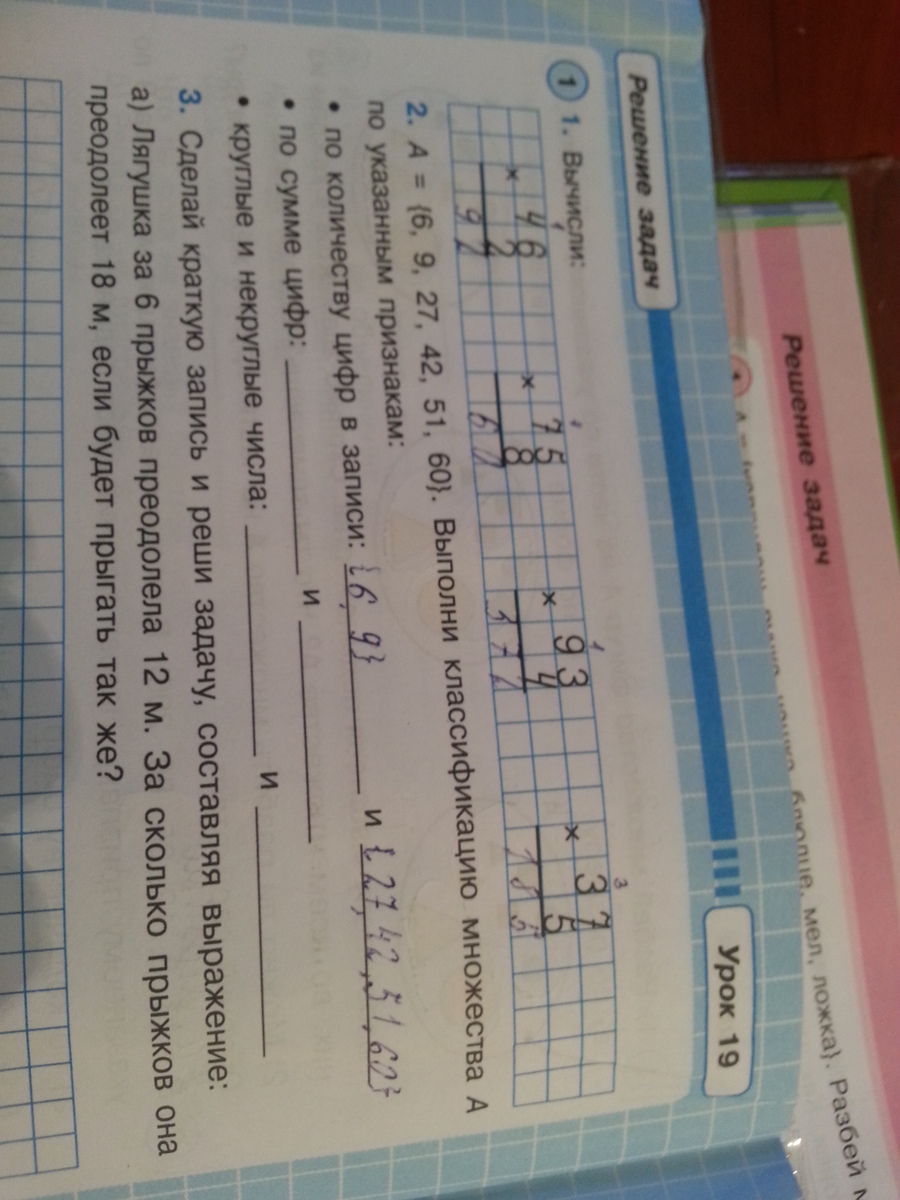 Решение задач
Урок 19
1 1. Вычисли:
1 1 3
46 75 93 37
× 2 × 8 × 4 × 5
92 60 372 185
2. А = {6, 9, 27, 42, 51, 60}. Выполни классификацию множества А
по указанным признакам:
• по количеству цифр в записи: {6, 9} и {27, 42, 51, 60}
• по сумме цифр: и
• круглые и некруглые числа: и
3. Сделай краткую запись и реши задачу, составляя выражение:
а) Лягушка за 6 прыжков преодолела 12 м. За сколько прыжков она
преодолеет 18 м, если будет прыгать так же?
Решение задач
блюдце, мел, ложка}. Разбей